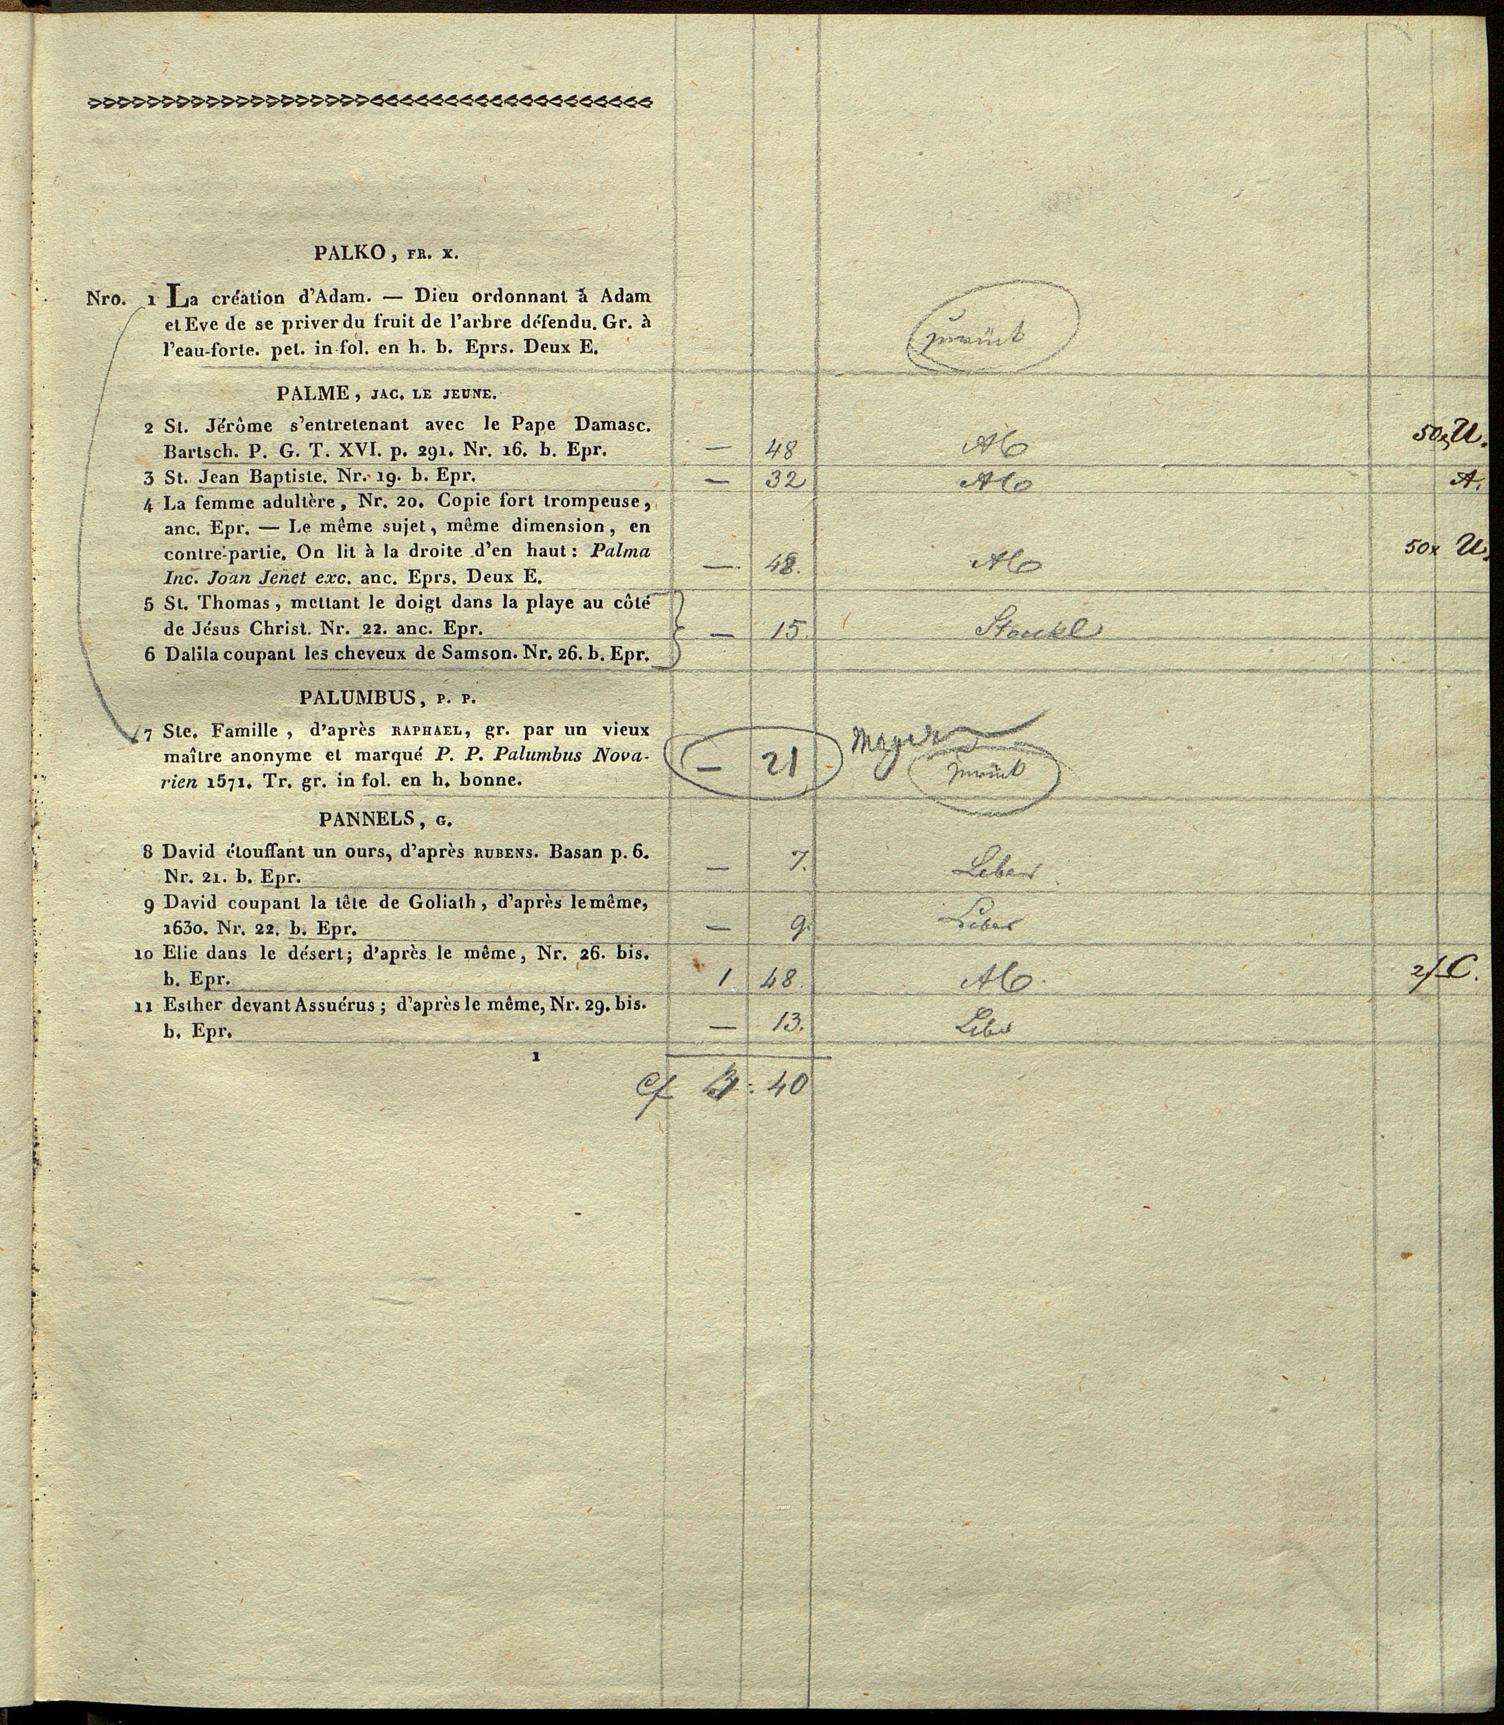 PALKO, FR. X.
Nro. 1 La création d'Adam. — Dieu ordonnant à Adam
et Eve de se priver du fruit de l'arbre défendu. Gr. à
l'eau-forte. pet. in fol. en h. b. Eprs. Deux E.
zurück
PALME, JAC. LE JEUNE.
2 St. Jérôme s'entretenant avec le Pape Damasc.
Bartsch. P. G. T. XVI. p. 291. Nr. 16. b. Epr. — 48 50x U.
3 St. Jean Baptiste. Nr. 19. b. Epr. — 32 A.
4 La femme adultère, Nr. 20. Copie fort trompeuse,
anc. Epr. — Le même sujet, même dimension, en
contre-partie. On lit à la droite d'en haut: Palma
Inc. Joan Jenet exc. anc. Eprs. Deux E. — 48. 50x U.
5 St. Thomas, mettant le doigt dans la playe au côté
de Jésus Christ. Nr. 22. anc. Epr. — 15. Stöckl
6 Dalila coupant les cheveux de Samson. Nr. 26. b. Epr.
PALUMBUS, P. P.
7 Ste. Famille, d'après RAPHAEL, gr. par un vieux
maître anonyme et marqué P. P. Palumbus Nova-
rien 1571. Tr. gr. in fol. en h. bonne. — 21 zurück
PANNELS, G.
8 David étouffant un ours, d'après RUBENS. Basan p. 6.
Nr. 21. b. Epr. — 7. Leber
9 David coupant la tête de Goliath, d'après le même,
1630. Nr. 22. b. Epr. — 9. Leber
10 Elie dans le désert; d'après le même, Nr. 26. bis.
b. Epr. 1 48. 2f C.
11 Esther devant Assuérus; d'après le même, Nr. 29. bis.
b. Epr. — 13. Leber
1
: 40